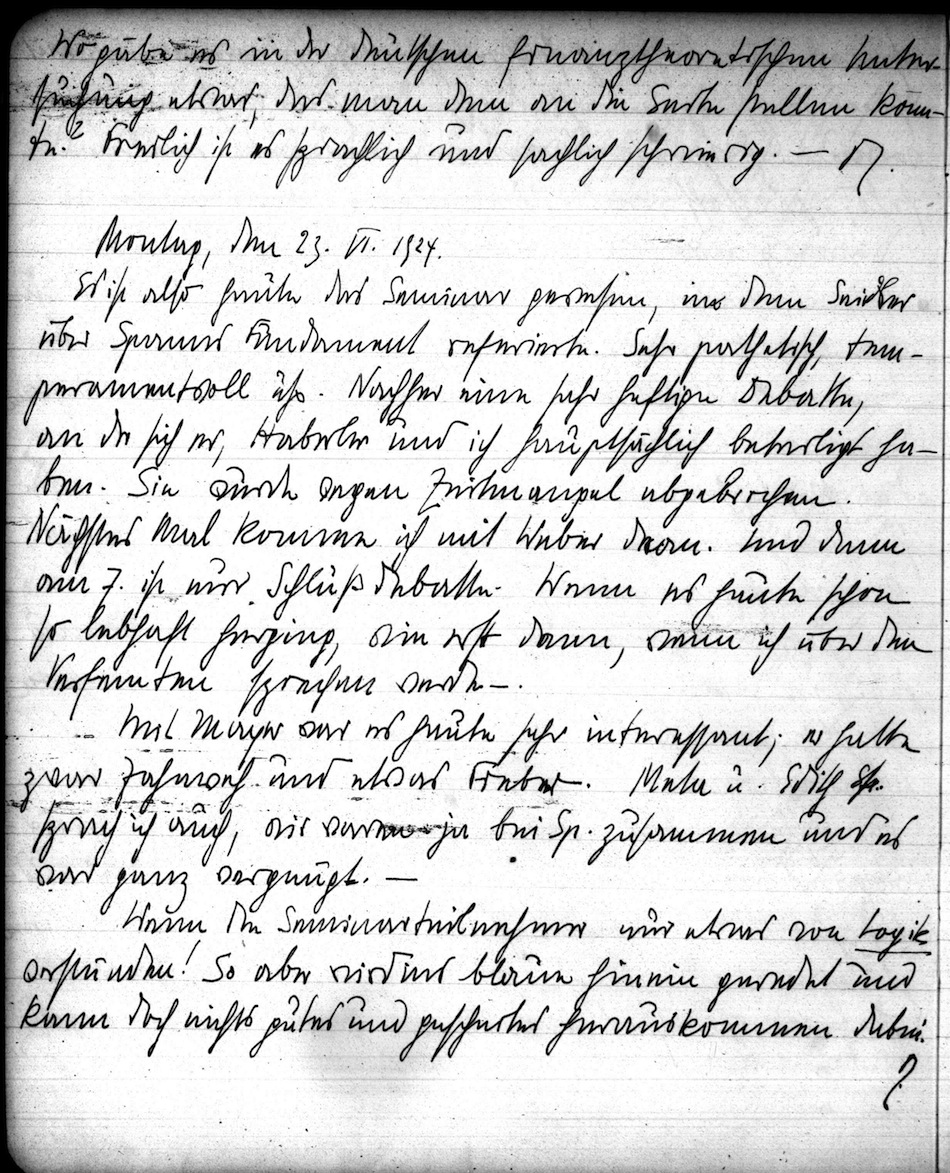 Wo gäbe es in der deutschen finanztheoretischen Unter-
suchung etwas, das man dem an die Seite stellen könn-
te? Freilich ist es sprachlich und sachlich schwierig. —
Montag, den 23. VI. 1924.
Es ist also heute das Seminar gewesen, in dem Seidler
über Spanns Fundament referierte. Sehr pathetisch, tem-
peramentvoll usf. Nachher eine sehr heftige Debatte,
an der sich er, Haberler und ich hauptsächlich beteiligt ha-
ben. Sie wurde wegen Zeitmangel abgebrochen.
Nächstes Mal komme ich mit Weber dran. Und dann
am 7. ist nur Schlußdebatte. Wenn es heute schon
so lebhaft herging, wie erst dann, wenn ich über den
Verfemten sprechen werde —.
Mit Mayer war es heute sehr interessant; er hatte
zwar Zahnweh und etwas Fieber. u. Edith
sprach ich auch, wir waren ja bei Sp. zusammen und es
war ganz vergnügt. —
Wenn die Seminarteilnehmer nur etwas von Logik
verstünden! So aber wird ins blaue hinein geredet und
kann doch nichts gutes und gescheites herauskommen dabei.